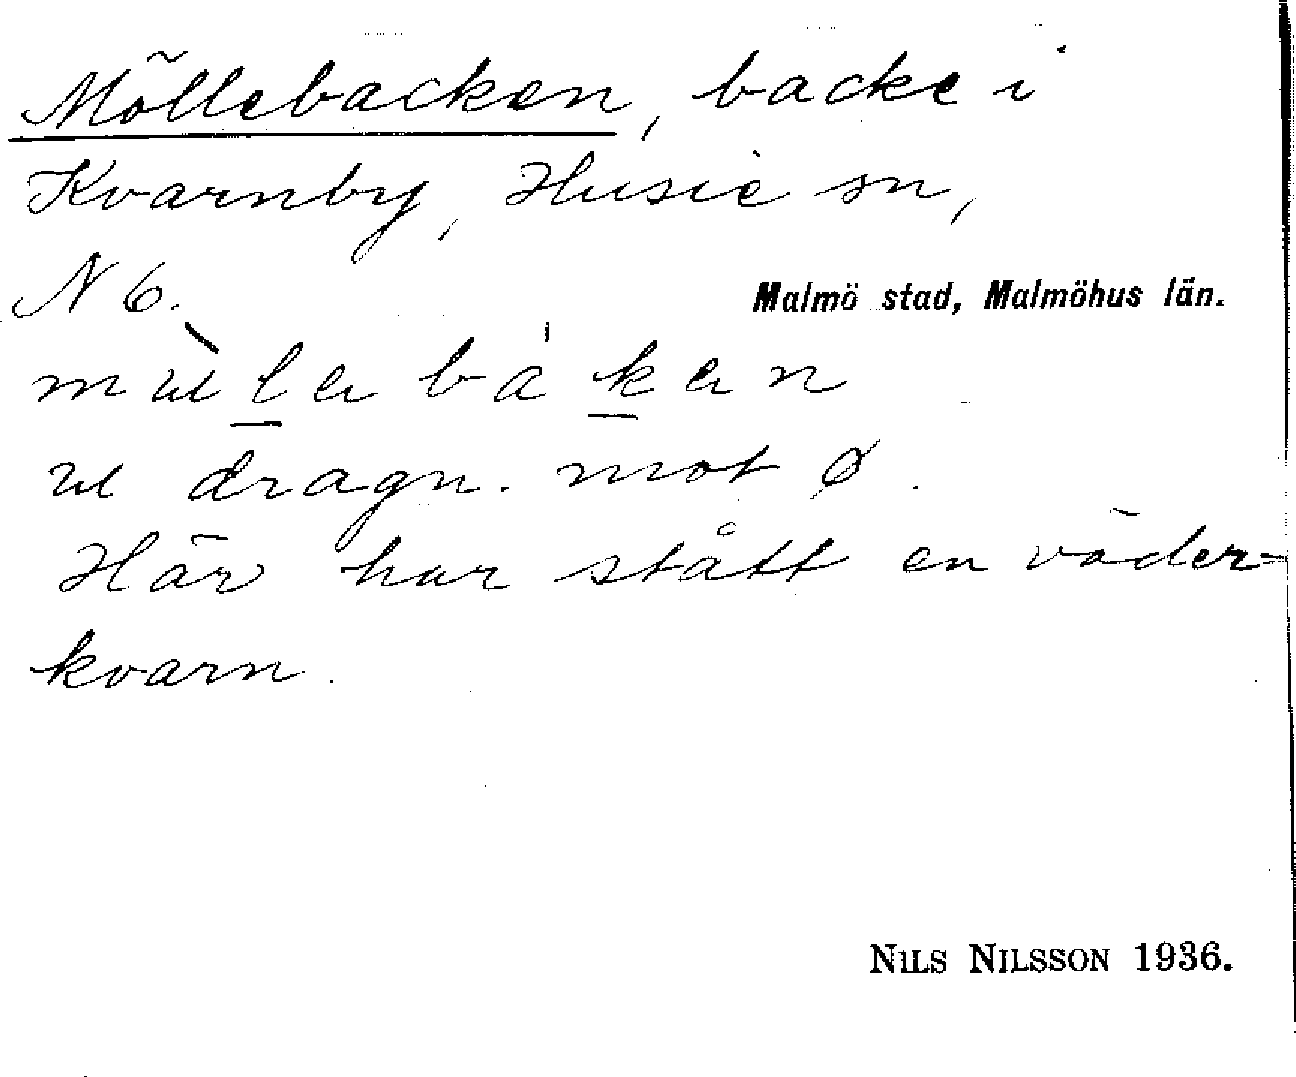 Möllebacken, backe i
Kvarnby, Husie sn,
N 6.
Malmö stad, Malmöhus län.
dragn. mot ø.
Här har stått en väder-
kvarn.
NILS NILSSON 1936.